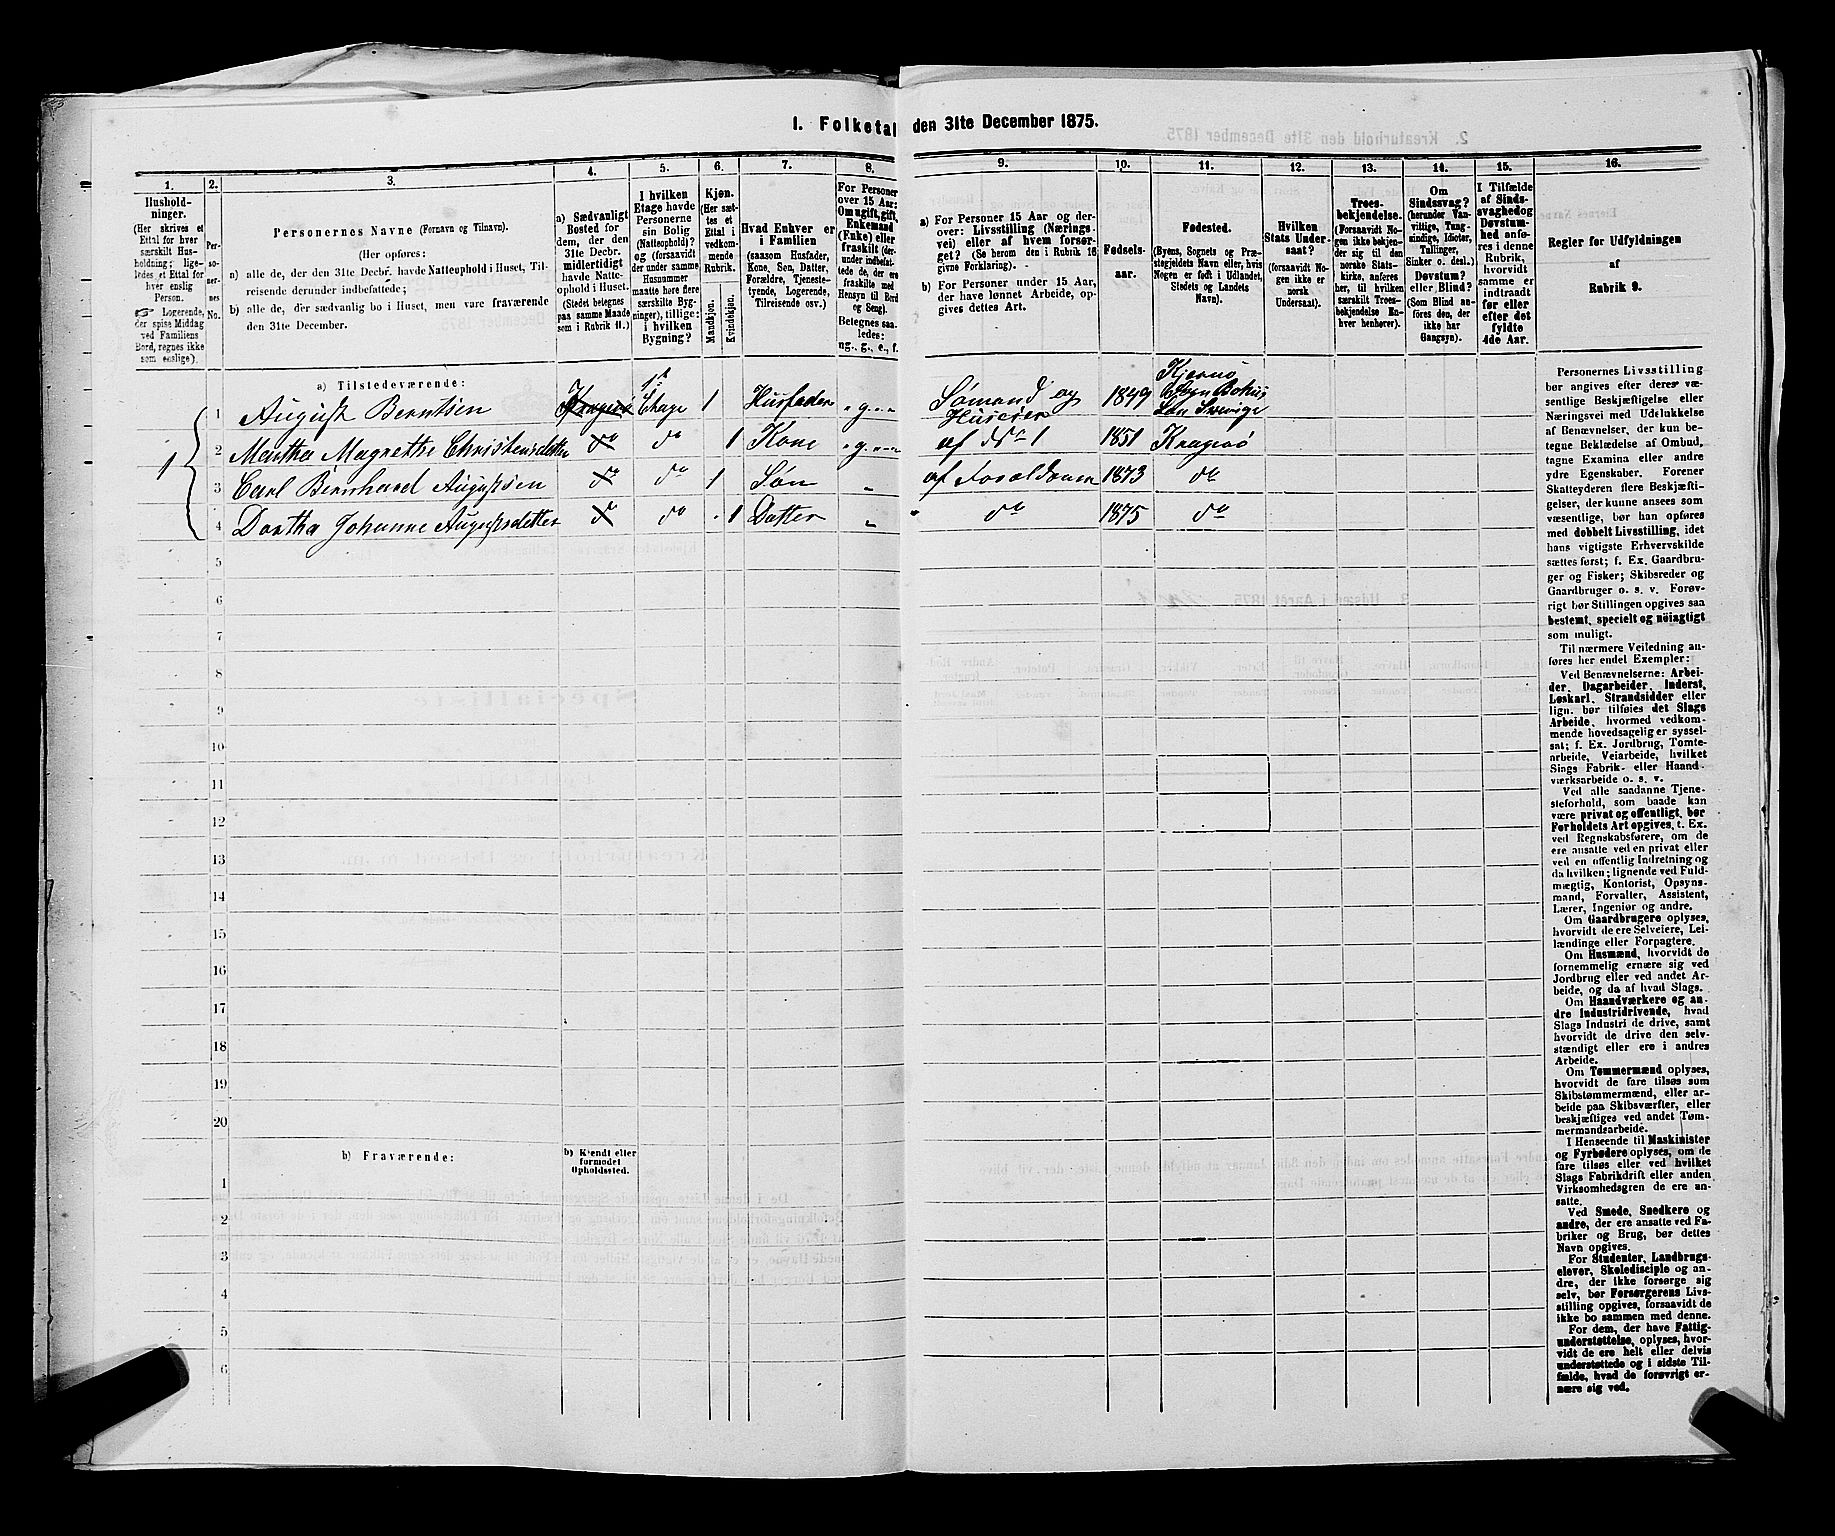 1. Folketal den 31te December 1875.
1.
Hushold-
ninger.
(Her skrives et
Ettal for hver
særskilt Hus-
holdning;
ligeledes et Ettal for
hver enslig
Person.
Logerende,
der spise Middag
ved Familiens
Bord, regnes ikke
som enslige).
2.
Per-
so-
ner-
nes
No.
3.
Personernes Navne (Fornavn og Tilnavn).
(Her opføres:
a) alle de, der den 31te Decbr. havde Natteophold i Huset, Til-
reisende derunder indbefattede;
b) alle de, der sædvanlig bo i Huset, men vare fraværende
den 31te December.
4.
a) Sædvanligt
Bosted for
dem, der den
31te Decbr.
midlertidigt
havde Natte-
ophold i Huset.
(Stedet betegnes
paa samme Maade
som i Rubrik 11.)
5.
I hvilken
Etage havde
Personerne
sin Bolig
(Natteophold)?
og (forsaavidt
der under samme
Husnummer
maatte være flere
særskilte Byg-
ninger), tillige:
i hvilken
Bygning?
6.
Kjøn.
(Her sæt-
tes et
Ettal i
vedkom-
mende
Rubrik.
Mandkjøn.
Kvindekjøn.
7.
Hvad Enhver er
i Familien
(saasom Husfader,
Kone, Søn, Datter,
Forældre, Tjeneste-
tyende, Logerende,
Tilreisende osv.)
8.
For Personer
over 15 Aar:
Om ugift, gift,
Enkemand
(Enke) eller
fraskilt
Betegnes saa-
ledes:
ug., g., e., f.
9.
a) For Personer 15 Aar og der-
over: Livsstilling (Nærings-
vei) eller af hvem forsør-
get? (Se herom den i Rubrik 16
givne Forklaring).
b) For Personer under 15 Aar,
der have lønnet Arbeide, op-
gives dettes Art.
10.
Fødsels-
aar.
11.
Fødested.
(Byens, Sognets og Præ-
stegjeldets Navn eller, hvis
Nogen er født i Udlandet,
Stedets og Landets
Navn).
12.
Hvilken
Stats Under-
saat?
(forsaavidt No-
gen ikke er
norsk
Undersaat).
13.
Troes-
bekjendelse.
(Forsaavidt No-
gen ikke bekjen-
der sig til den
norske Stats-
kirke, anføres
her, til hvilken
særskilt Troes-
bekjendelse En-
hver henhører).
14.
Om
Sindssvag?
(herunder Van-
vittige, Tung-
sindige, Idioter,
Tullinger,
Sinker o. desl.)
Døvstum?
eller Blind?
(Som Blind an-
føres den, der
ikke har
Gangsyn).
15.
I Tilfælde
af Sinds-
svaghed og
Døvstum-
hed anfø-
res i denne
Rubrik,
hvorvidt
samme er
indtraadt
før eller
efter det
fyldte
4de Aar.
16.
Regler for Udfyldningen
af
Rubrik 9.
a) Tilstedeværende:
1
1 August Berntsen Kragerø 1st Etage 1 Husfader g Sømand og Huseier 1849 Sogn Bohus Len Sverige
2 Martha Magrethe Christensdatter do do 1 Kone g af No 1 1851 Kragerø
3 Carl Bernhard Augustsen do do 1 Søn af Forældrene 1873 do
4 Dortha Johanne Augustsdatter do do 1 Datter do 1875 do
5
6
7
8
9
10
11
12
13
14
15
16
17
18
19
20
b) Fraværende:
b) Kjendt eller
formodet
Opholdssted.
1
2
3
4
5
6
Personernes Livsstilling
bør angives efter deres væ-
sentlige Beskjæftigelse eller
Næringsvei med Udelukkelse
af Benævnelser, der kun be-
tegne Beklædelse af Ombud,
tagne Examina eller andre
ydre Egenskaber. Forener
Skatteyderen flere Beskjæfti-
gelser, der kunne ansees som
væsentlige, bør han opføres
med dobbelt Livsstilling, idet
hans vigtigste Erhvervskilde
sættes først; f. Ex. Gaardbru-
ger og Fisker; Skibsreder og
Gaardbruger o. s. v. Forøv-
rigt bør Stillingen opgives saa
bestemt, specielt og nøiagtigt
som muligt.
Til nærmere Veiledning an-
føres her endel Exempler:
Ved Benævnelserne: Arbei-
der, Dagarbeider, Inderst,
Løskarl, Strandsidder eller
lign. bør tilføies det Slags
Arbeide, hvormed vedkom-
mende hovedsagelig er syssel-
sat; f. Ex. Jordbrug, Tomte-
arbeide, Veiarbeide, hvilket
Sings Fabrik- eller Haand-
værksarbeide o. s. v.
Ved alle saadanne Tjene-
steforhold, som baade kan
være privat og offentligt, bør
Forholdets Art opgives, t. Ex.
ved Regnskabsførere, om de
ere ansatte ved en privat eller
ved en offentlig Indretning og
da hvilken; lignende ved Fuld-
mægtig, Kontorist, Opsyns-
mand, Forvalter, Assistent,
Lærer, Ingeniør og andre.
Om Gaardbrugere oplyses,
hvorvidt de ere Selveiere, Lei-
lændinge eller Forpagtere.
Om Husmænd, hvorvidt de
fornemmelig ernære sig ved
Jordbrug eller ved andet Ar-
beide, og da af hvad Slags.
Om Haandværkere og an-
dre Industridrivende, hvad
Slags Industri de drive, samt
hvorvidt de drive den selv-
stændigt eller ere i andres
Arbeide.
Om Tømmermænd oplyses,
hvorvidt de fare tilsøs som
Skibstømmermænd, eller ar-
beide paa Skibsværfter, eller
beskjæftiges ved andet Tøm-
mermandsarbeide.
I Henseende til Maskinister
og Fyrbødere oplyses, om de
fare tilsøs eller ved hvilket
Slags Fabrikdrift eller anden
Virksomhedsgren de ere an-
satte.
Ved Smede, Snedkere og
andre, der ere ansatte ved Fa-
briker og Brug, bør dettes
Navn opgives.
For Studenter, Landbrugs-
elever, Skoledisciple og an-
dre, der ikke forsørge sig
selv, bør Forsørgerens Livs-
stilling opgives, forsaavidt de
ikke bo sammen med denne.
For dem, der have Fattig-
understøttelse, oplyses, hvor-
vidt de ere helt eller delvis
understøttede og i sidste Til-
fælde, hvad de forøvrigt er-
nære sig ved.